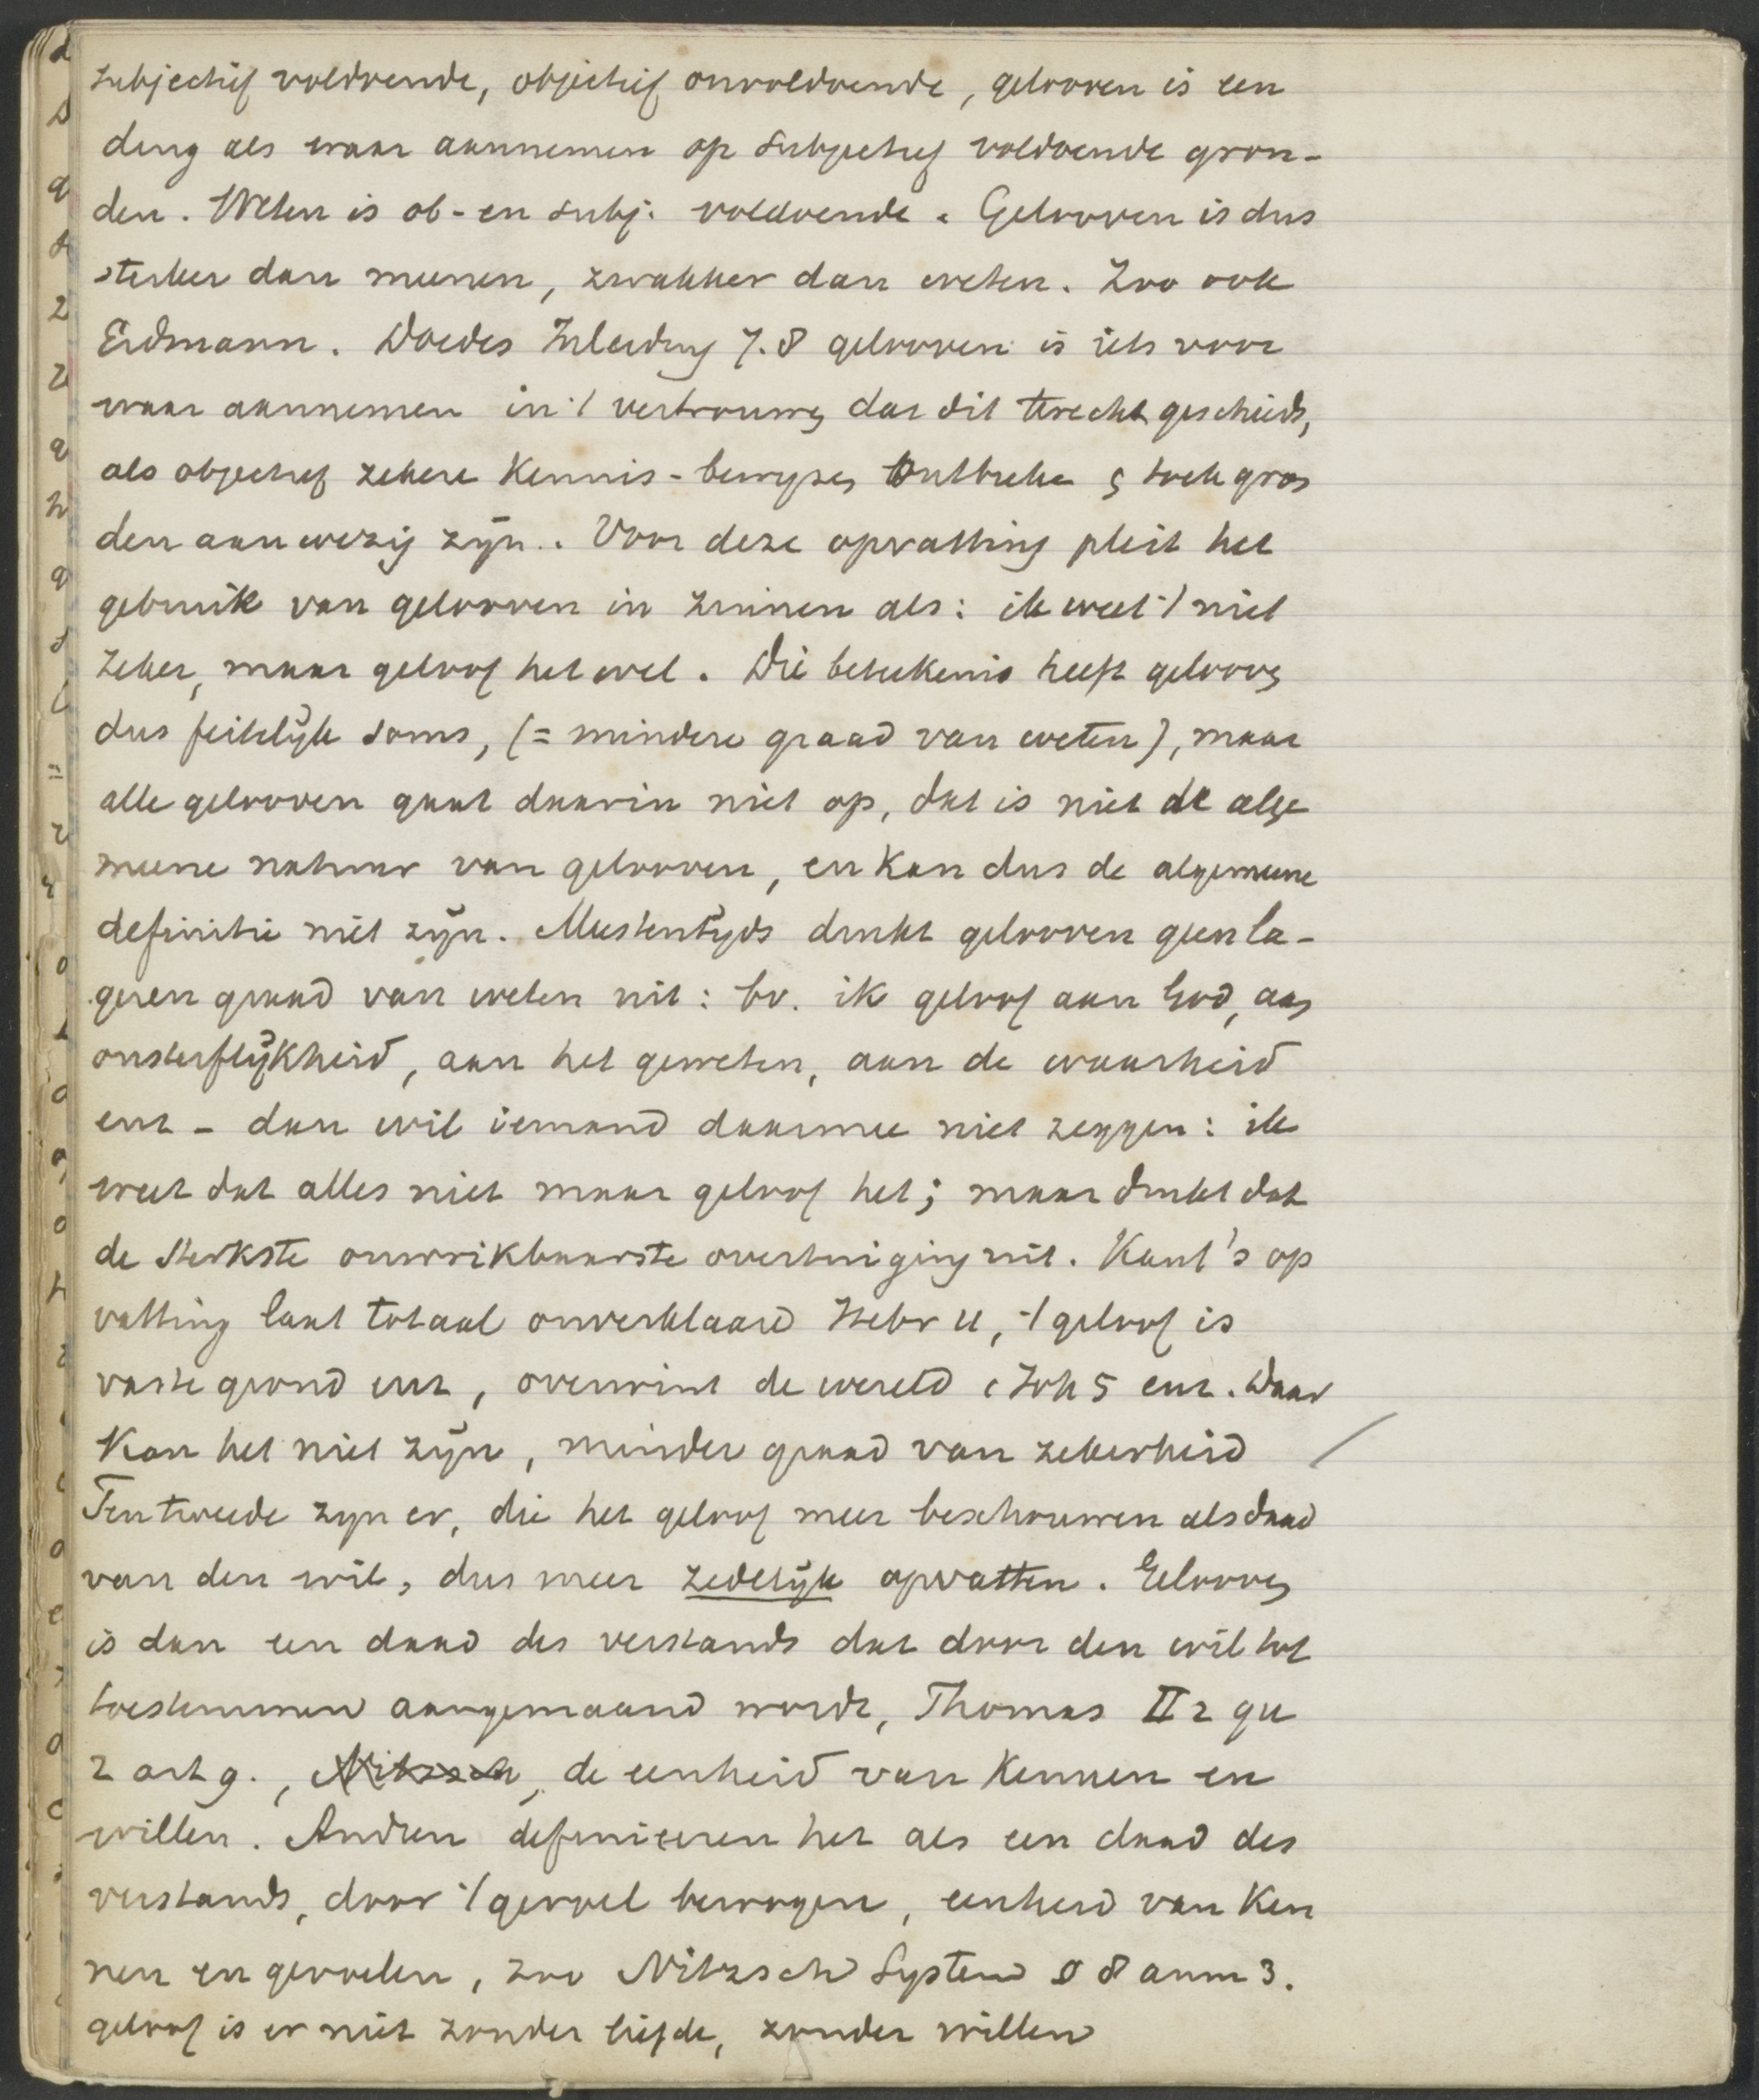 subjectief voldoende, objectief onvoldoende, gelooven is een
ding als waar aannemen op subjectief voldoende gron-
den. Weten is ob- en subj. voldoende. Gelooven is dus
sterker dan meenen, zwakker dan weten. Zoo ook
Erdmann. Doedes Inleiding 7.8 gelooven is iets voor
waar aannemen in 't vertrouwen dat dit terecht geschiedt,
als objectief zekere kennis-bewijzen ontbreken en toch gron
den aanwezig zijn. Voor deze opvatting pleit het
gebruik van gelooven in zinnen als: ik weet 't niet
zeker, maar geloof het wel. Die beteekenis heeft gelooven
dus feitelijk soms, (= mindere graad van weten), maar
alle gelooven gaat daarin niet op, dat is niet de alge
meene natuur van gelooven, en kan dus de algemeene
definitie niet zijn. Meestentijds drukt gelooven geen la-
geren graad van weten uit: bv. ik geloof aan God, aan
onsterflijkheid, aan het geweten, aan de waarheid
enz - dan wil iemand daarmee niet zeggen: ik
weet dat alles niet maar geloof het; maar drukt dat
de sterkste onwrikbaarste overtuiging uit. Kant's op
vatting laat totaal onverklaard Hebr 11, 't geloof is
vaste grond enz, overwint de wereld 1 Joh 5 enz. Daar
kan het niet zijn, minder graad van zekerheid
Ten tweede zijn er, die het geloof meer beschouwen als daad
van den wil, dus meer zedelijk opvatten. Gelooven
is dan een daad des verstands dat door den wil tot
toestemmen aangemaand wordt, Thomas II 2 qu
2 art 9., Nitzsch, de eenheid van kennen en
willen. Andren definieeren het als een daad des
verstands, door 't gevoel bewogen, eenheid van ken
nen en gevoelen, zoo Nitzsch System § 8 anm 3.
geloof is er niet zonder liefde, zonder willen